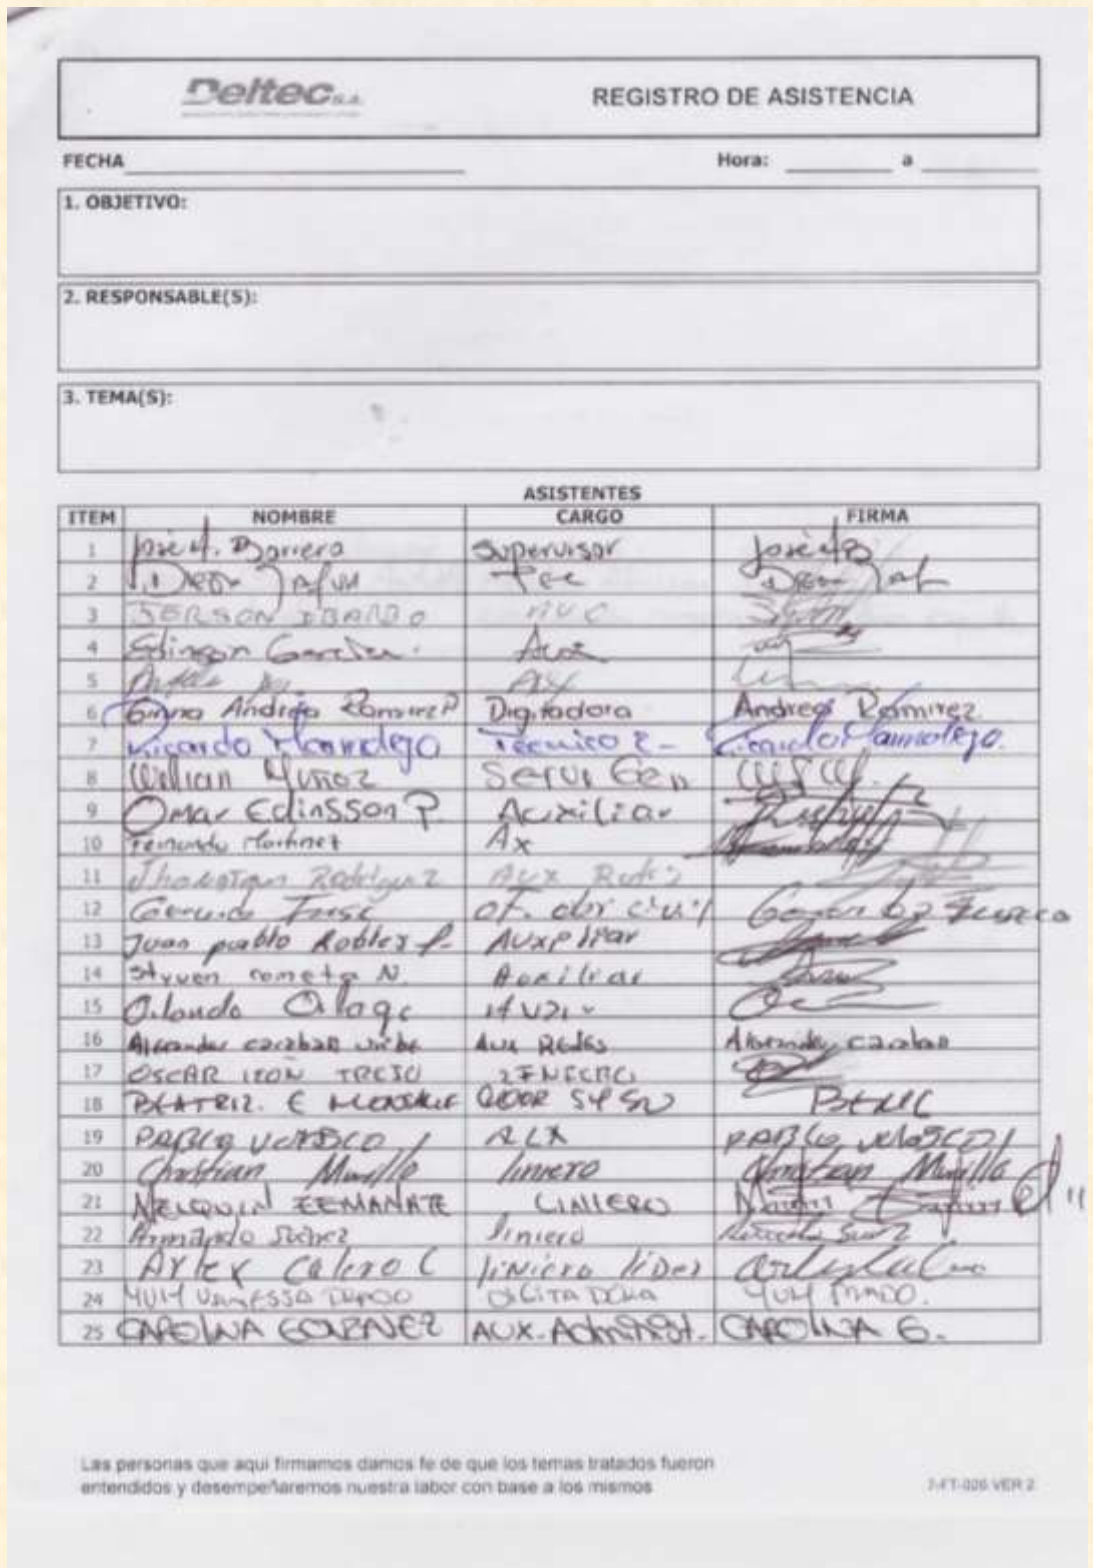 Deltec S.A.
REGISTRO DE ASISTENCIA
FECHA Hora: a
1. OBJETIVO:
2. RESPONSABLE(S):
3. TEMA(S):
ASISTENTES
ITEM NOMBRE CARGO FIRMA
1 José A. Barrera Supervisor José A B
2 Diego Tec Diego
3 JERSON IBARBO AUX
4 Edinson Garcia Aux
5 AX
6 Andrea Ramirez P Digitadora Andrea Ramirez
7 Ricardo Marmolejo Técnico 2 Ricardo Marmolejo
8 Willian Muñoz Servi Gen
9 Omar Edinsson P. Auxiliar
10 Fernando Martinez Ax
11 Jhonatan Rodriguez Aux Redes
12 Gerardo of. obr civil
13 Juan pablo Robles P. AUXPliar
14 Styven cometa N. Auxiliar
15 Orlando
16 Alexander carabali uribe Aux Redes Alexander carabali
17 OSCAR LEON
18 BEATRIZ. E
19 PABLO VELASCO AUX PABLO VELASCO
20 Christian Murillo liniero Christian Murillo
21 MELQUIN ZEMANATE LINIERO
22 Armando liniero
23 Arlex Calero C liniero lider
24 YULY VANESSA DIGITADORA YULY
25 CAROLINA GONZALEZ AUX. Administ. CAROLINA G.
Las personas que aqui firmamos damos fe de que los temas tratados fueron
entendidos y desempeñaremos nuestra labor con base a los mismos
7-FT-026 VER 2